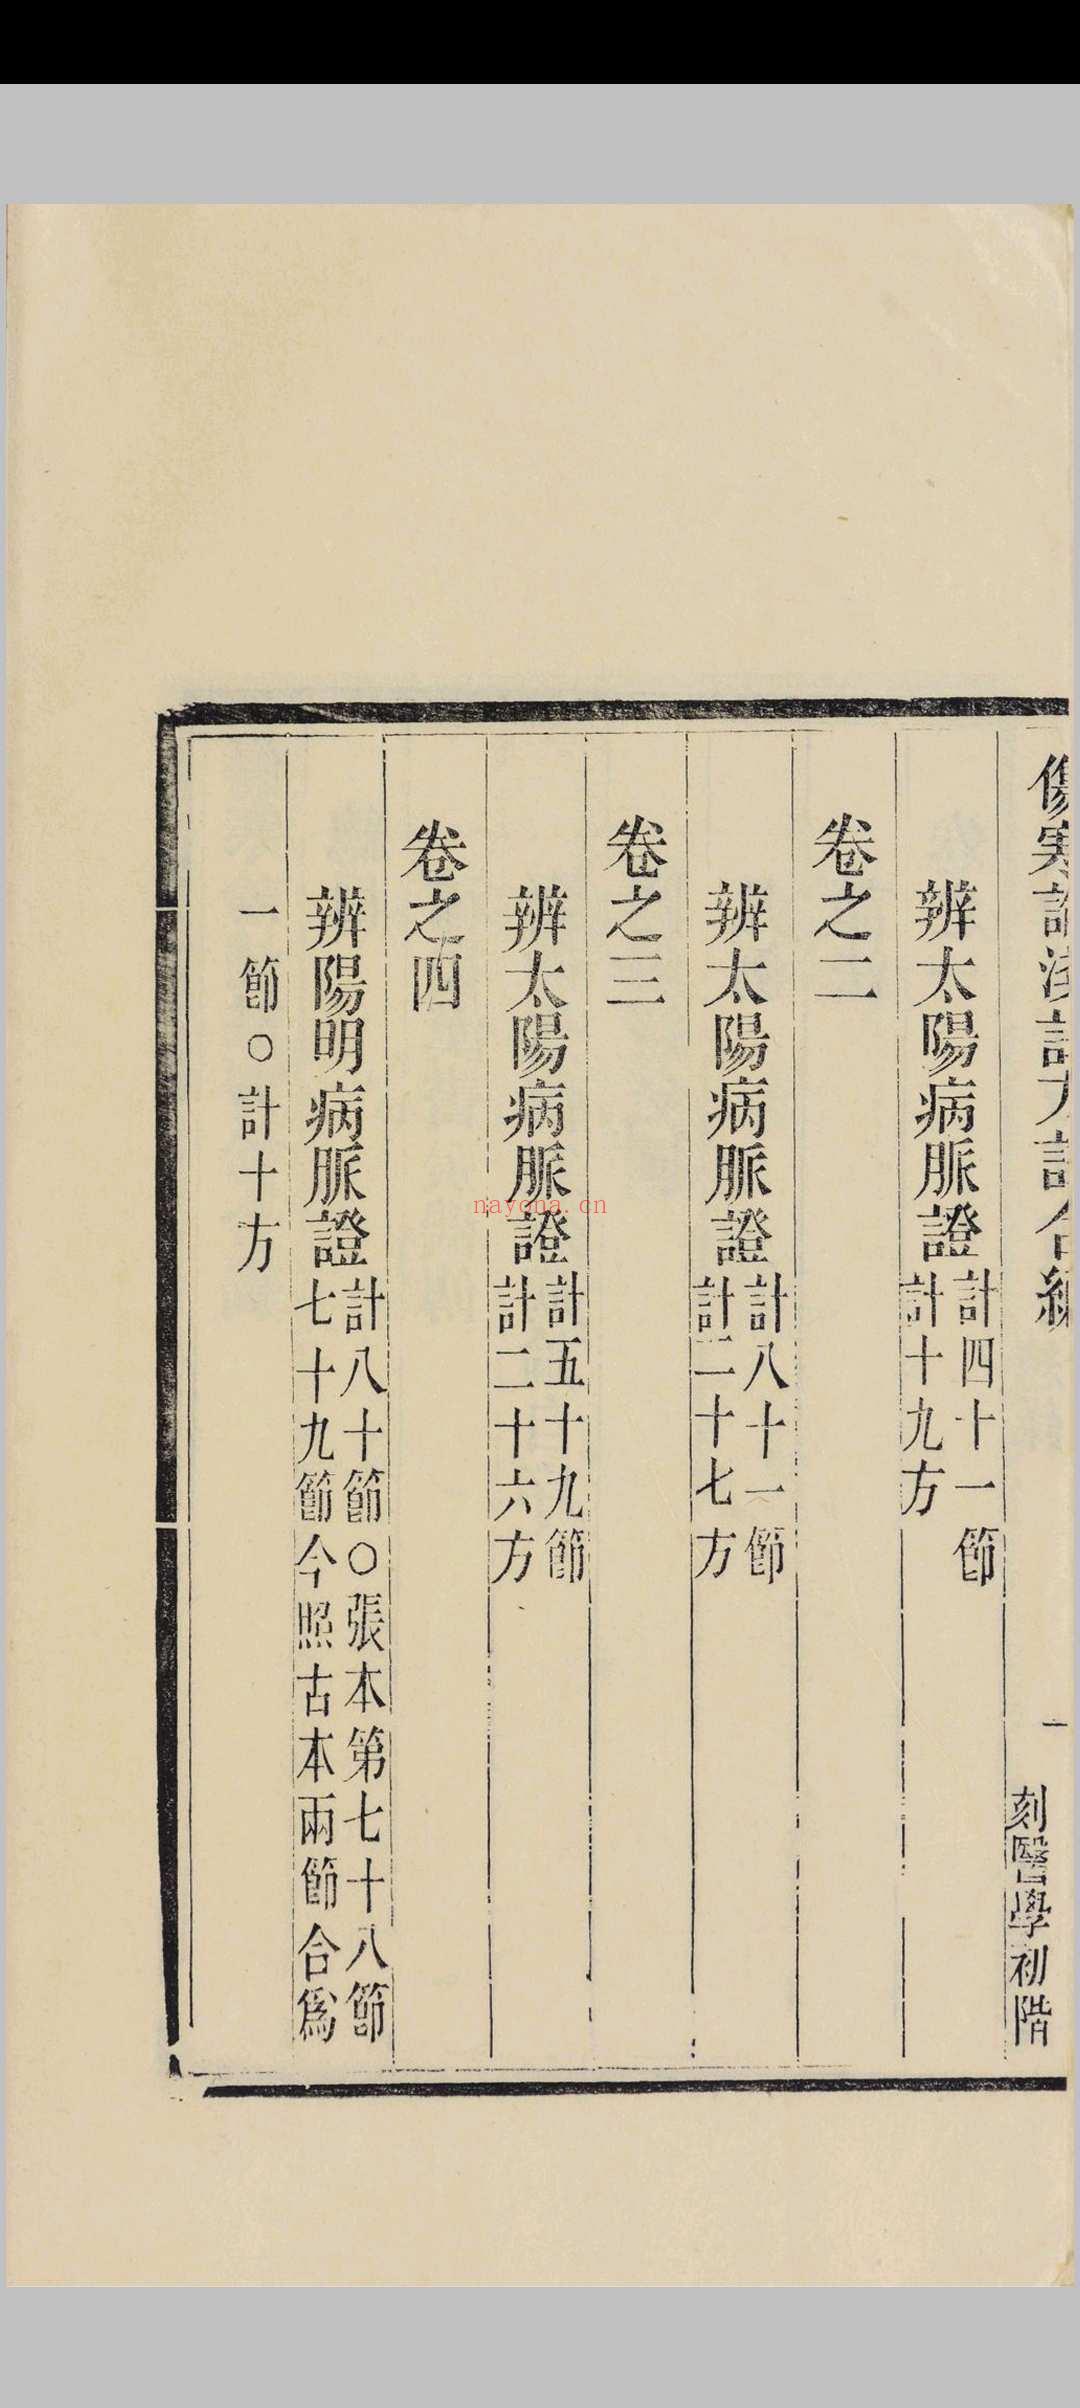 傷寒論淺註方論合編
一
刻醫學初階
辨太陽病脈證計四十一節
計十九方
卷之二
辨太陽病脈證計八十一節
計二十七方
卷之三
辨太陽病脈證計五十九節
計二十六方
卷之四
辨陽明病脈證計八十節○張本第七十八節
七十九節今照古本兩節合爲
一節○計十方
nayona.cn